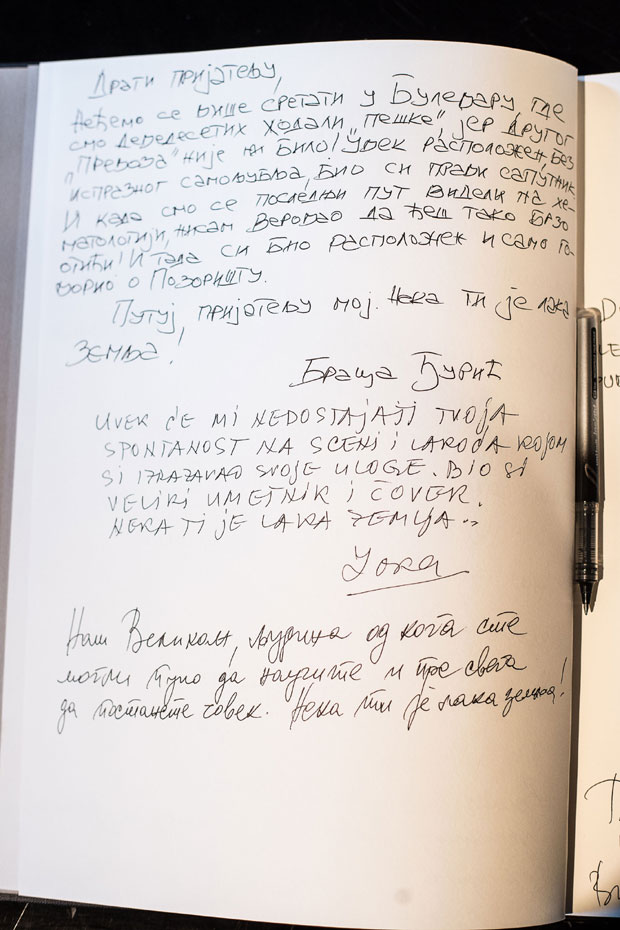 Драги пријатељу,
Нећемо се више сретати у Булевару, где
смо деведесетих ходали "пешке", јер другог
"превоза" није ни било! Увек расположен, без
испразног самољубља, био си прави сапутник.
И када смо се последњи пут видели на хе-
матологији, нисам веровао да ћеш тако брзо
отићи! И тада си био расположен и само го-
ворио о Позоришту.
Путуј, пријатељу мој. Нека ти је лака
земља!
Браца Ђурић
UVEK ĆE MI NEDOSTAJATI TVOJA
SPONTANOST NA SCENI I LAKOĆA KOJOM
SI IZRAŽAVAO SVOJE ULOGE. BIO SI
VELIKI UMETNIK I ČOVEK.
NEKA TI JE LAKA ZEMLJA..
Наш Великан, људина од кога сте
могли пуно да научите и пре свега
да постанете човек. Нека ти је лака земља!